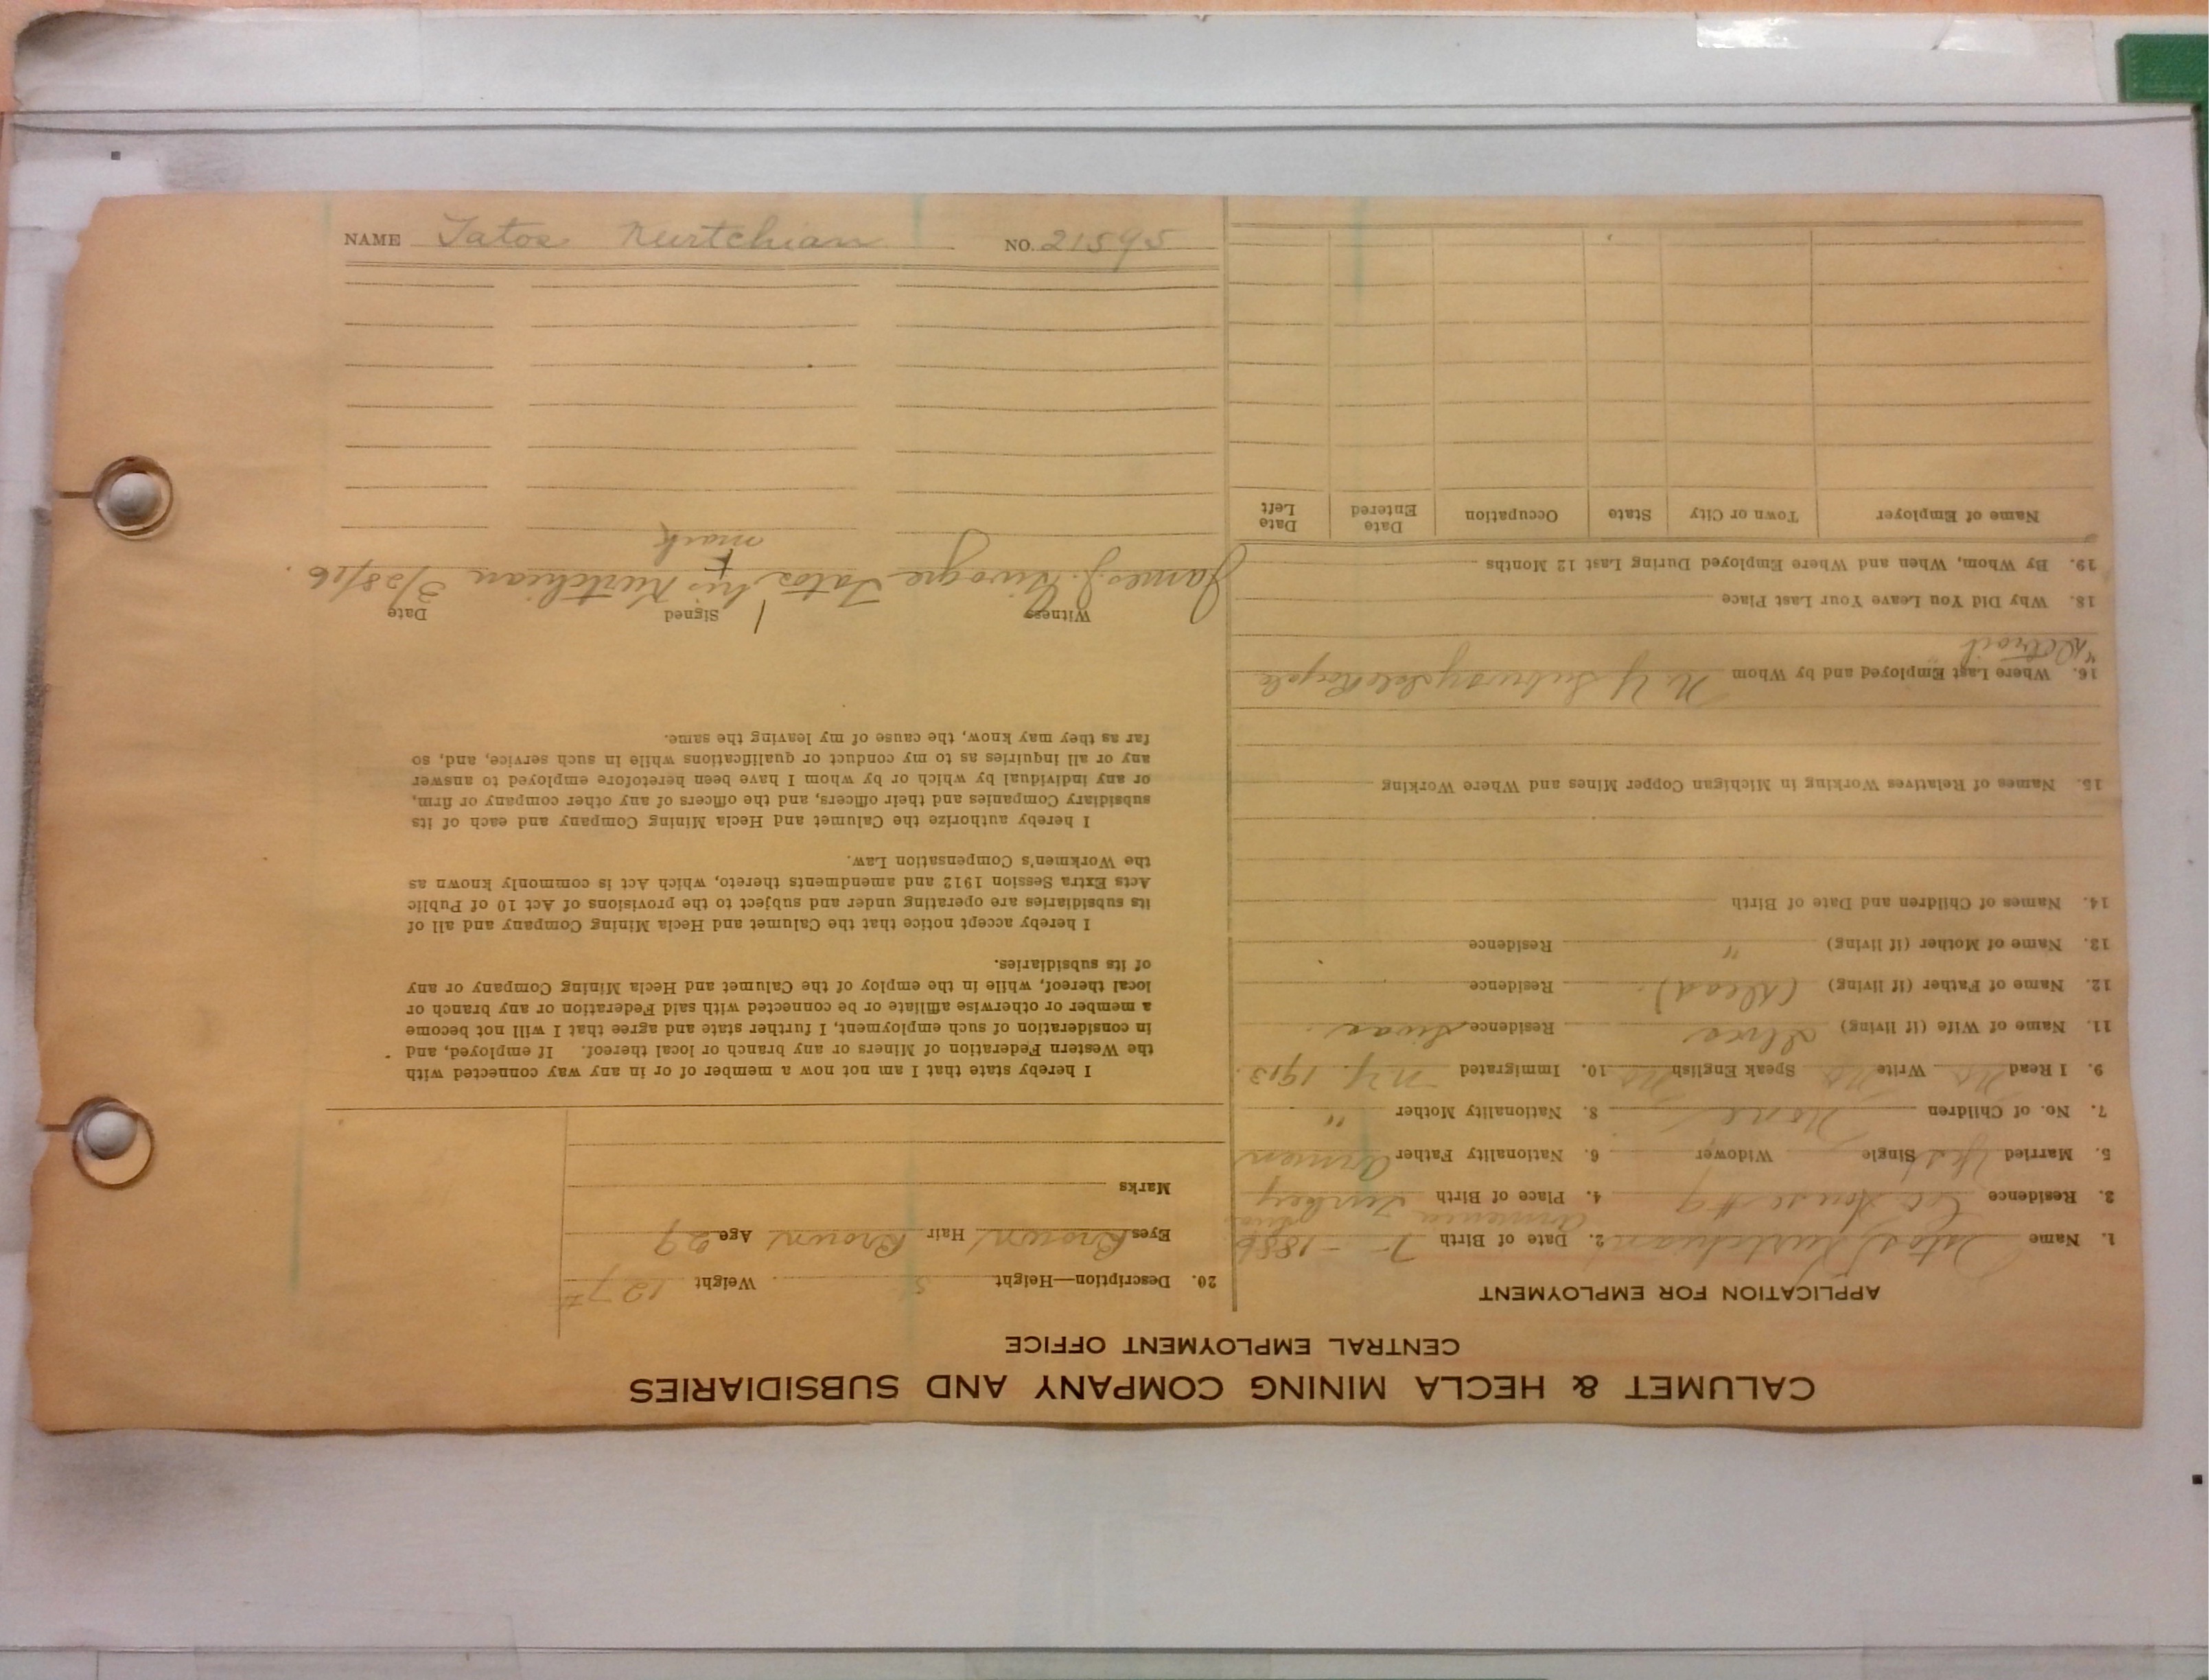 CALUMET & HECLA MINING COMPANY AND SUBSIDIARIES
CENTRAL EMPLOYMENT OFFICE
APPLICATION FOR EMPLOYMENT
1. Name Tatos Kurtchian 2. Date of Birth 7 - 1886
3. Residence Co House #9 4. Place of Birth Armenia Turkey Sivas
5. Married Yes Single Widower 6. Nationality Father Armen
7. No. of Children None 8. Nationality Mother "
9. I Read No Write No Speak English No 10. Immigrated N.Y. 1913.
11. Name of Wife (if living) Residence Sivas
12. Name of Father (if living) (Dead) Residence
13. Name of Mother (if living) " Residence
14. Names of Children and Date of Birth
15. Names of Relatives Working in Michigan Copper Mines and Where Working
16. Where Last Employed and by Whom N. Y. Subway Isle Royale
" Detroit
18. Why Did You Leave Your Last Place
19. By Whom, When and Where Employed During Last 12 Months
Name of Employer Town or City State Occupation Date Entered Date Left
20. Description—Height 5 Weight 127#
Eyes Brown Hair Brown Age 29
Marks
I hereby state that I am not now a member of or in any way connected with
the Western Federation of Miners or any branch or local thereof. If employed, and
in consideration of such employment, I further state and agree that I will not become
a member or otherwise affiliate or be connected with said Federation or any branch or
local thereof, while in the employ of the Calumet and Hecla Mining Company or any
of its subsidiaries.
I hereby accept notice that the Calumet and Hecla Mining Company and all of
its subsidiaries are operating under and subject to the provisions of Act 10 of Public
Acts Extra Session 1912 and amendments thereto, which Act is commonly known as
the Workmen's Compensation Law.
I hereby authorize the Calumet and Hecla Mining Company and each of its
subsidiary Companies and their officers, and the officers of any other company or firm,
or any individual by which or by whom I have been heretofore employed to answer
any or all inquiries as to my conduct or qualifications while in such service, and, so
far as they may know, the cause of my leaving the same.
Witness Signed Date
James J. Tatos his Kurtchian 3/28/16.
+
mark
NAME Tatos Kurtchian NO. 21595